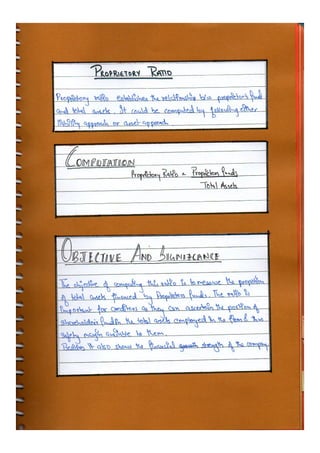 PROPRIETORY RATIO
Proprietory ratio establishes the relationship b/w proprietors funds
and total assets. It could be computed by following either
liability approach or asset approach
COMPUTATION
Proprietory Ratio = Proprietors funds
Total Assets
OBJECTIVE AND SIGNIFICANCE
The objective of computing this ratio is to measure the proportion
of total assets financed by Proprietors funds. The ratio is
important for creditors as they can ascertain the portion of
shareholders fund in the total assets employed in the firm & thus
safety margin available to them.
Besides it also shows the financial strength of the company